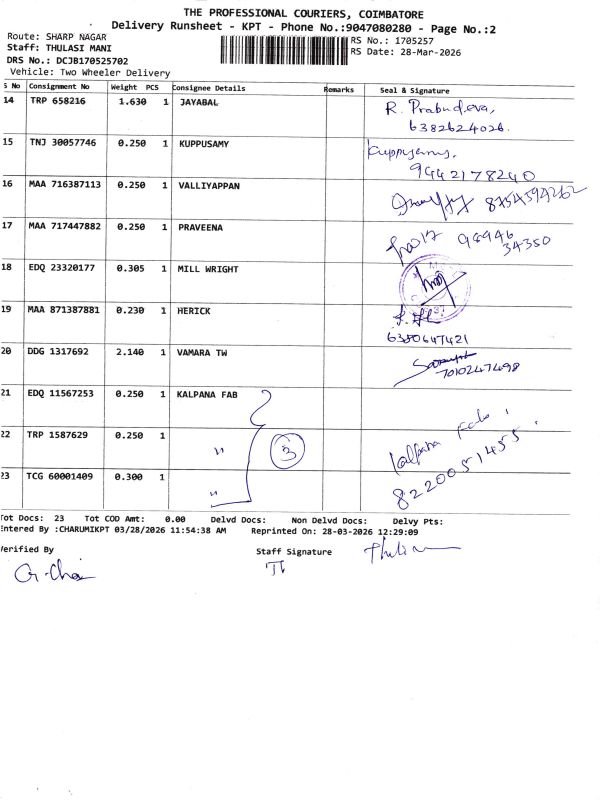 THE PROFESSIONAL COURIERS, COIMBATORE
Delivery Runsheet - KPT - Phone No.:9047080280 - Page No.:2
Route: SHARP NAGAR
RS No.: 1705257
Staff: THULASI MANI
RS Date: 28-Mar-2026
DRS No.: DCJB170525702
Vehicle: Two Wheeler Delivery
S No Consignment No Weight PCS Consignee Details Remarks Seal & Signature
14 TRP 658216 1.630 1 JAYABAL R. Prabudeva,
6382624026.
15 TNJ 30057746 0.250 1 KUPPUSAMY Kuppusamy,
9442178240
16 MAA 716387113 0.250 1 VALLIYAPPAN 8754594262
17 MAA 717447882 0.250 1 PRAVEENA 96946
34350
18 EDQ 23320177 0.305 1 MILL WRIGHT
19 MAA 871387881 0.230 1 HERICK
6380647421
20 DDG 1317692 2.140 1 VAMARA TW
7010247498
21 EDQ 11567253 0.250 1 KALPANA FAB
22 TRP 1587629 0.250 1 " 3 Kalpana Fab
23 TCG 60001409 0.300 1 " 8220051455
Tot Docs: 23 Tot COD Amt: 0.00 Delvd Docs: Non Delvd Docs: Delvy Pts:
Entered By :CHARUMIKPT 03/28/2026 11:54:38 AM Reprinted On: 28-03-2026 12:29:09
Verified By Staff Signature